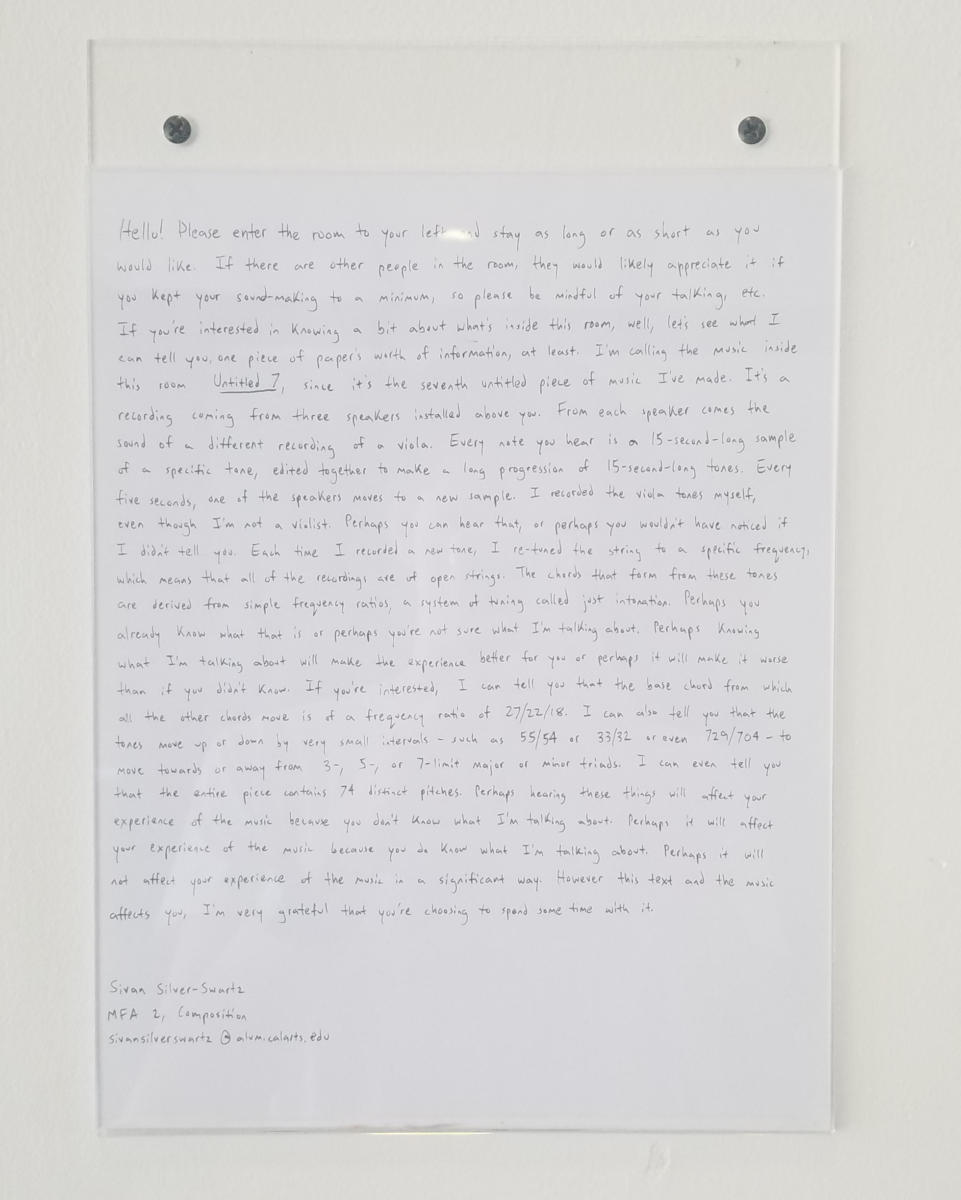 Hello! Please enter the room to your left and stay as long or as short as you
would like. If there are other people in the room, they would likely appreciate it if
you kept your sound-making to a minimum, so please be mindful of your talking, etc.
If you're interested in knowing a bit about what's inside this room, well, let's see what I
can tell you, one piece of paper's worth of information, at least. I'm calling the music inside
this room Untitled 7, since it's the seventh untitled piece of music I've made. It's a
recording coming from three speakers installed above you. From each speaker comes the
sound of a different recording of a viola. Every note you hear is a 15-second-long sample
of a specific tone, edited together to make a long progression of 15-second-long tones. Every
five seconds, one of the speakers moves to a new sample. I recorded the viola tones myself,
even though I'm not a violist. Perhaps you can hear that, or perhaps you wouldn't have noticed if
I didn't tell you. Each time I recorded a new tone, I re-tuned the string to a specific frequency,
which means that all of the recordings are of open strings. The chords that form from these tones
are derived from simple frequency ratios, a system of tuning called just intonation. Perhaps you
already know what that is or perhaps you're not sure what I'm talking about. Perhaps knowing
what I'm talking about will make the experience better for you or perhaps it will make it worse
than if you didn't know. If you're interested, I can tell you that the base chord from which
all the other chords move is of a frequency ratio of 27/22/18. I can also tell you that the
tones move up or down by very small intervals - such as 55/54 or 33/32 or even 729/704 - to
move towards or away from 3-, 5-, or 7-limit major or minor triads. I can even tell you
that the entire piece contains 74 distinct pitches. Perhaps hearing these things will affect your
experience of the music because you don't know what I'm talking about. Perhaps it will affect
your experience of the music because you do know what I'm talking about. Perhaps it will
not affect your experience of the music in a significant way. However this text and the music
affects you, I'm very grateful that you're choosing to spend some time with it.
Sivan Silver-Swartz
MFA 2, Composition
sivansilverswartz@alum.calarts.edu